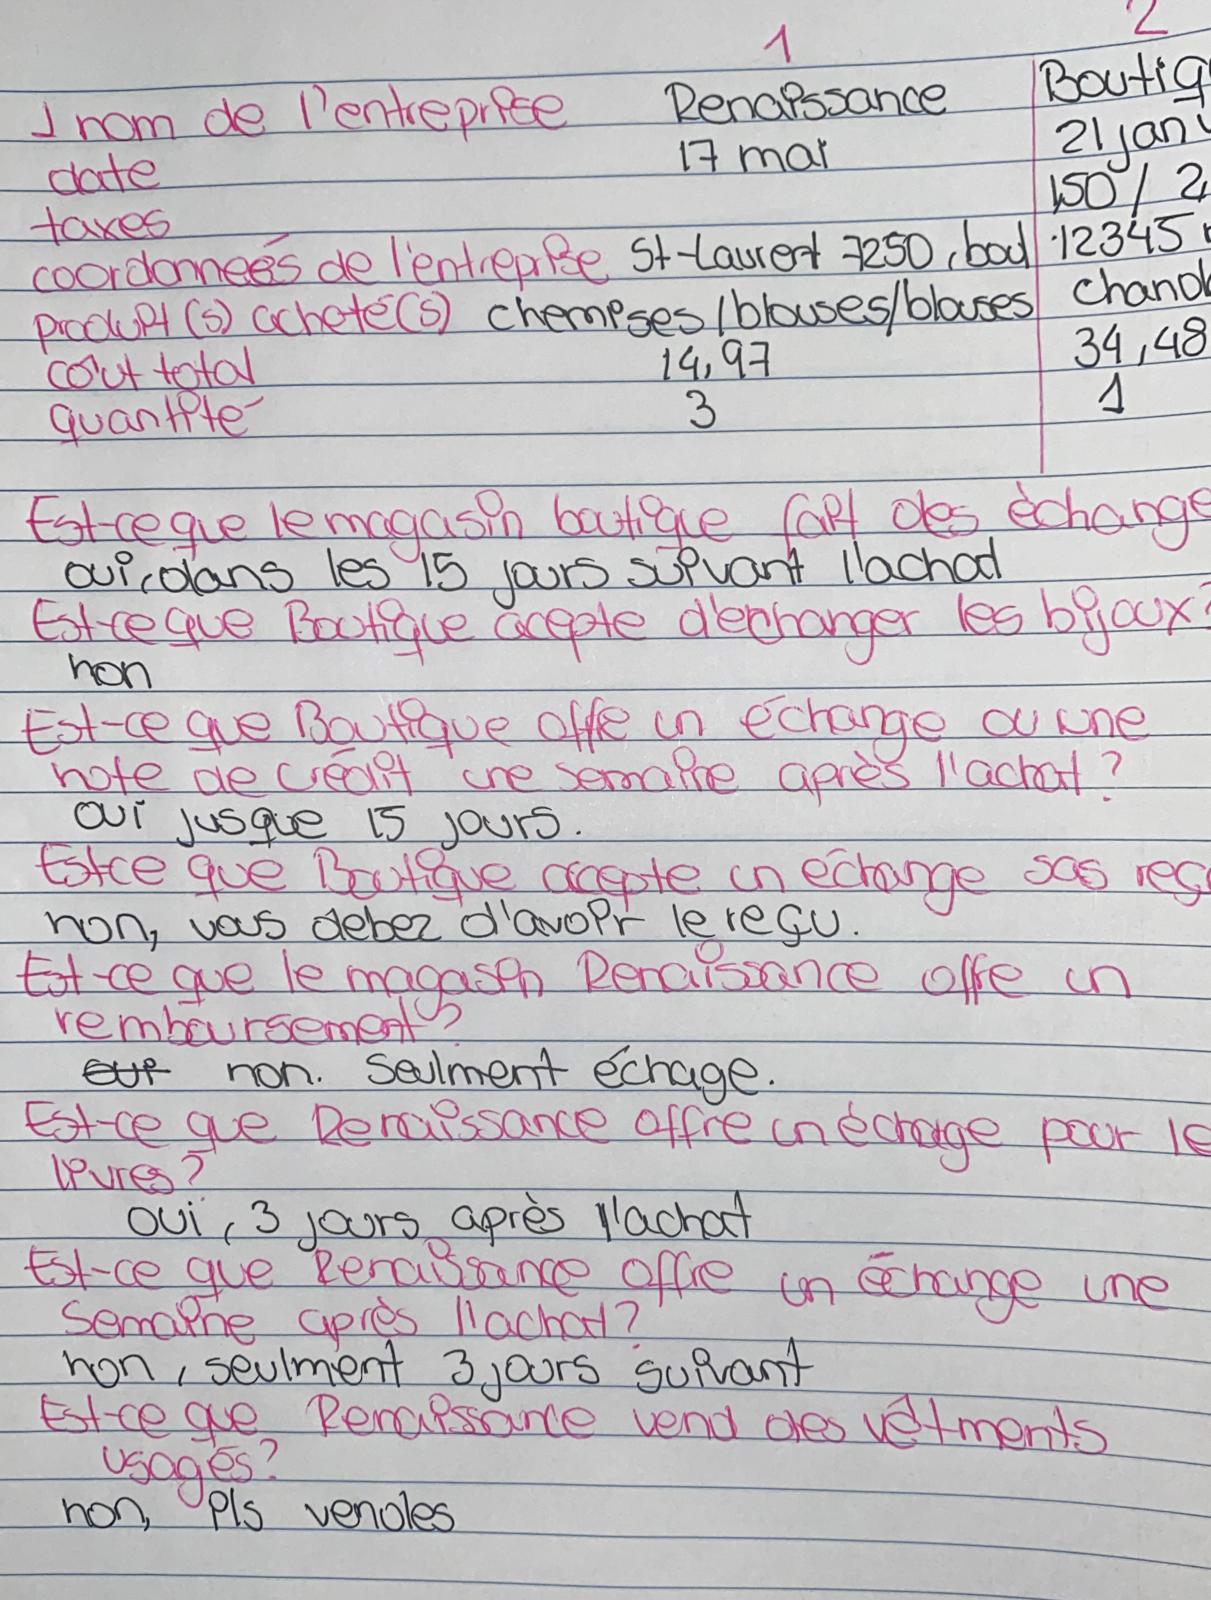 1 2
1 nom de l'entreprise Renaissance Boutiq
date 17 mai 21 janv
taxes 1,50 / 2,
coordonneés de l'entreprise St-Laurent 7250, boul 12345
produit(s) acheté(s) chemises/blouses/blouses chand
coût total 14,97 34,48
quantité 3 1
Est-ce que le magasin boutique fait des échange
oui, dans les 15 jours suivant l'achat
Est-ce que Boutique acepte d'echanger les bijoux?
non
Est-ce que Boutique offe un échange ou une
note de crédit une semaine après l'achat?
oui jusque 15 jours.
Est-ce que Boutique accepte un échange sas reç
non, vous debez d'avoir le reçu.
Est-ce que le magasin Renaissance offe un
remboursement?
non. Seulment échage.
Est-ce que Renaissance offre un échage pour le
livres?
oui, 3 jours après l'achat
Est-ce que Renaissance offre un échange une
semaine après l'achat?
non, seulment 3 jours suivant
Est-ce que Renaissance vend des vêtments
usagés?
non, ils vendes